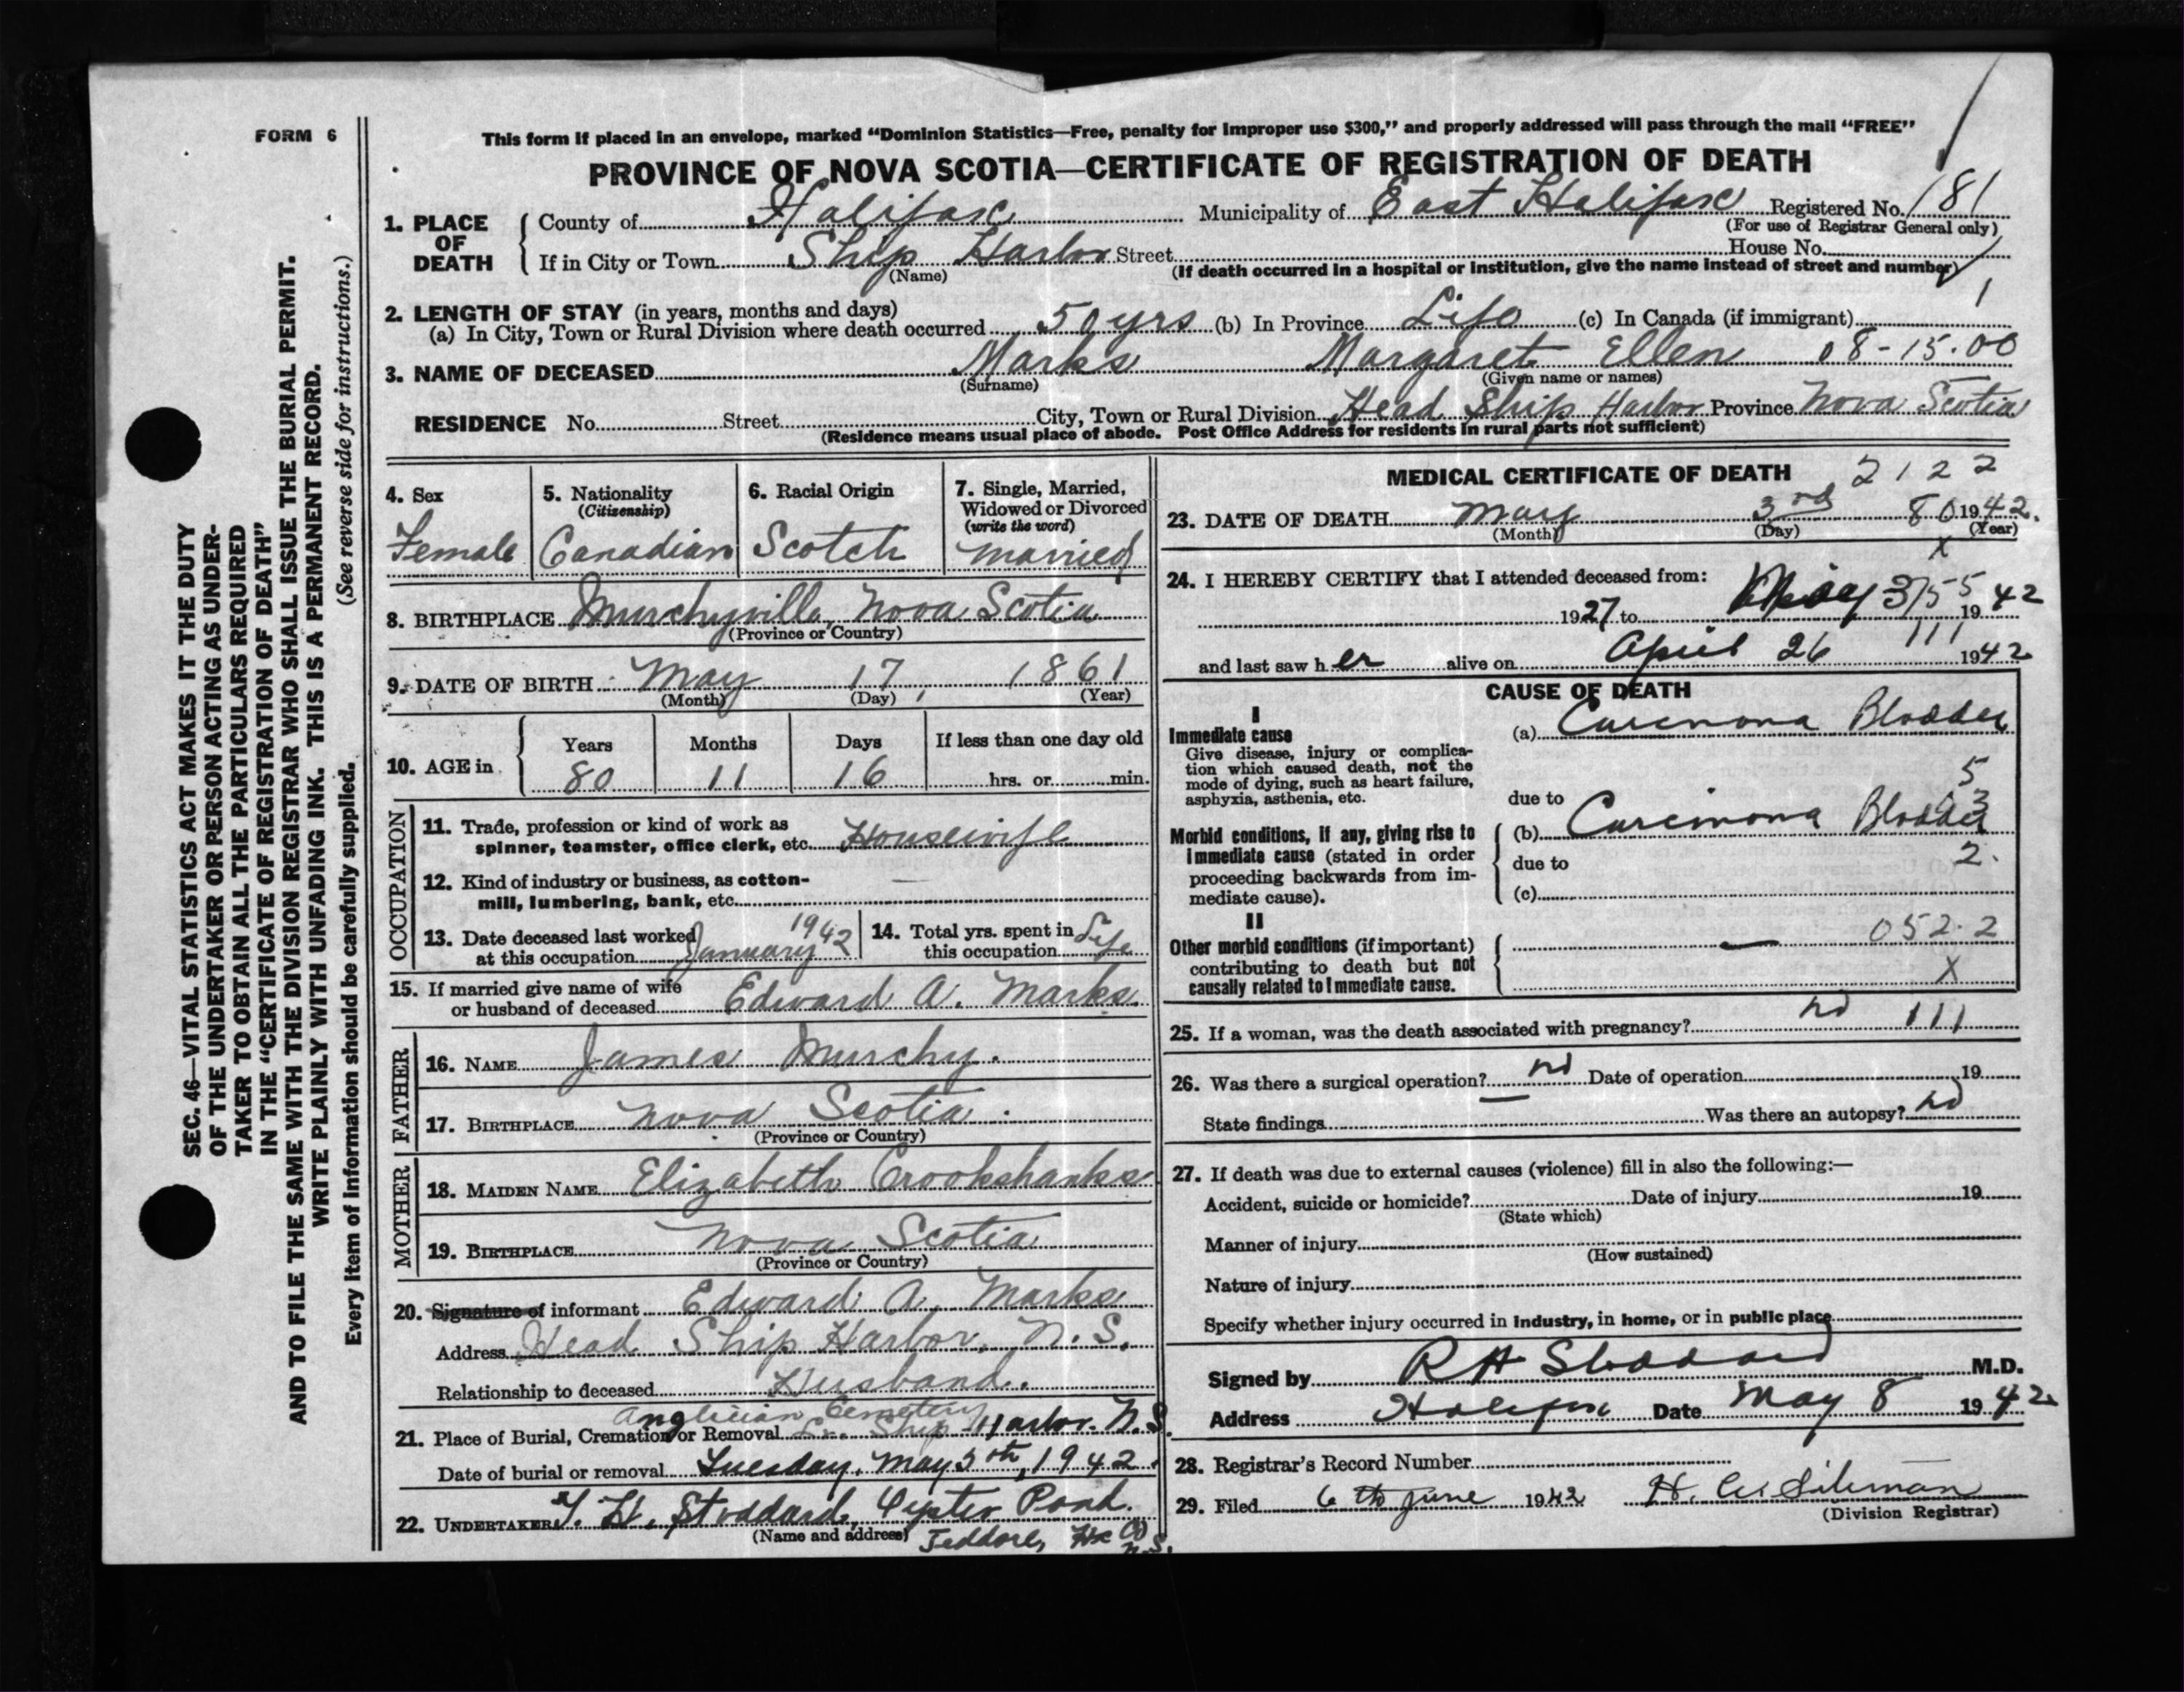 FORM 6
This form if placed in an envelope, marked “Dominion Statistics—Free, penalty for improper use $300,” and properly addressed will pass through the mail “FREE”
PROVINCE OF NOVA SCOTIA—CERTIFICATE OF REGISTRATION OF DEATH
1. PLACE OF DEATH County of Halifax Municipality of East Halifax Registered No. 181
(For use of Registrar General only)
If in City or Town Ship Harbor Street House No.
(Name) (If death occurred in a hospital or institution, give the name instead of street and number)
2. LENGTH OF STAY (in years, months and days)
(a) In City, Town or Rural Division where death occurred 50 yrs (b) In Province Life (c) In Canada (if immigrant)
3. NAME OF DECEASED Marks Margaret Ellen 08-15.00
(Surname) (Given name or names)
RESIDENCE No. Street City, Town or Rural Division Head Ship Harbor Province Nova Scotia
(Residence means usual place of abode. Post Office Address for residents in rural parts not sufficient)
4. Sex Female
5. Nationality (Citizenship) Canadian
6. Racial Origin Scotch
7. Single, Married, Widowed or Divorced (write the word) Married
8. BIRTHPLACE Murchyville, Nova Scotia
(Province or Country)
9. DATE OF BIRTH May 17, 1861
(Month) (Day) (Year)
10. AGE in Years Months Days If less than one day old
80 11 16 hrs. or min.
OCCUPATION
11. Trade, profession or kind of work as
spinner, teamster, office clerk, etc. Housewife
12. Kind of industry or business, as cotton-
mill, lumbering, bank, etc. —
13. Date deceased last worked
at this occupation January 1942
14. Total yrs. spent in
this occupation Life
15. If married give name of wife
or husband of deceased Edward A. Marks
FATHER
16. NAME James Murchy.
17. BIRTHPLACE Nova Scotia.
(Province or Country)
MOTHER
18. MAIDEN NAME Elizabeth Crookshanks
19. BIRTHPLACE Nova Scotia
(Province or Country)
20. Signature of informant Edward A. Marks
Address Head Ship Harbor, N.S.
Relationship to deceased Husband.
Anglician Cemetery
21. Place of Burial, Cremation or Removal Lr. Ship Harbor. N.S.
Date of burial or removal Tuesday, May 5th, 1942.
22. UNDERTAKER T. H. Stoddard, Oyster Pond.
(Name and address) Jeddore, Hx Co N.S.
MEDICAL CERTIFICATE OF DEATH 2122
23. DATE OF DEATH May 3rd 80 1942.
(Month) (Day) (Year)
x
24. I HEREBY CERTIFY that I attended deceased from:
1927 to May 3/5 55 1942
111
and last saw her alive on April 26 1942
CAUSE OF DEATH
I
Immediate cause
Give disease, injury or complica-
tion which caused death, not the
mode of dying, such as heart failure,
asphyxia, asthenia, etc.
(a) Carcinona Bladder
5
due to
3
Morbid conditions, if any, giving rise to
immediate cause (stated in order
proceeding backwards from im-
mediate cause).
(b) Carcinona Bladder
due to 2.
(c)
II
Other morbid conditions (if important)
contributing to death but not
causally related to immediate cause.
— 052.2
X
25. If a woman, was the death associated with pregnancy? no 111
26. Was there a surgical operation? no Date of operation 19
State findings Was there an autopsy? no
27. If death was due to external causes (violence) fill in also the following:—
Accident, suicide or homicide? Date of injury 19
(State which)
Manner of injury
(How sustained)
Nature of injury
Specify whether injury occurred in industry, in home, or in public place
Signed by R H Stoddard M.D.
Address Halifax Date May 8 1942
28. Registrar's Record Number
29. Filed 6 th June 1942 H. W. Siteman
(Division Registrar)
SEC. 46—VITAL STATISTICS ACT MAKES IT THE DUTY
OF THE UNDERTAKER OR PERSON ACTING AS UNDER-
TAKER TO OBTAIN ALL THE PARTICULARS REQUIRED
IN THE “CERTIFICATE OF REGISTRATION OF DEATH”
AND TO FILE THE SAME WITH THE DIVISION REGISTRAR WHO SHALL ISSUE THE BURIAL PERMIT.
WRITE PLAINLY WITH UNFADING INK. THIS IS A PERMANENT RECORD.
Every item of information should be carefully supplied. (See reverse side for instructions.)